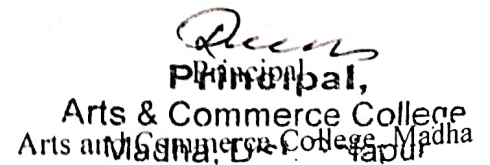 Principal,
Principal
Arts & Commerce College
Arts and Commerce College, Madha
Madha,